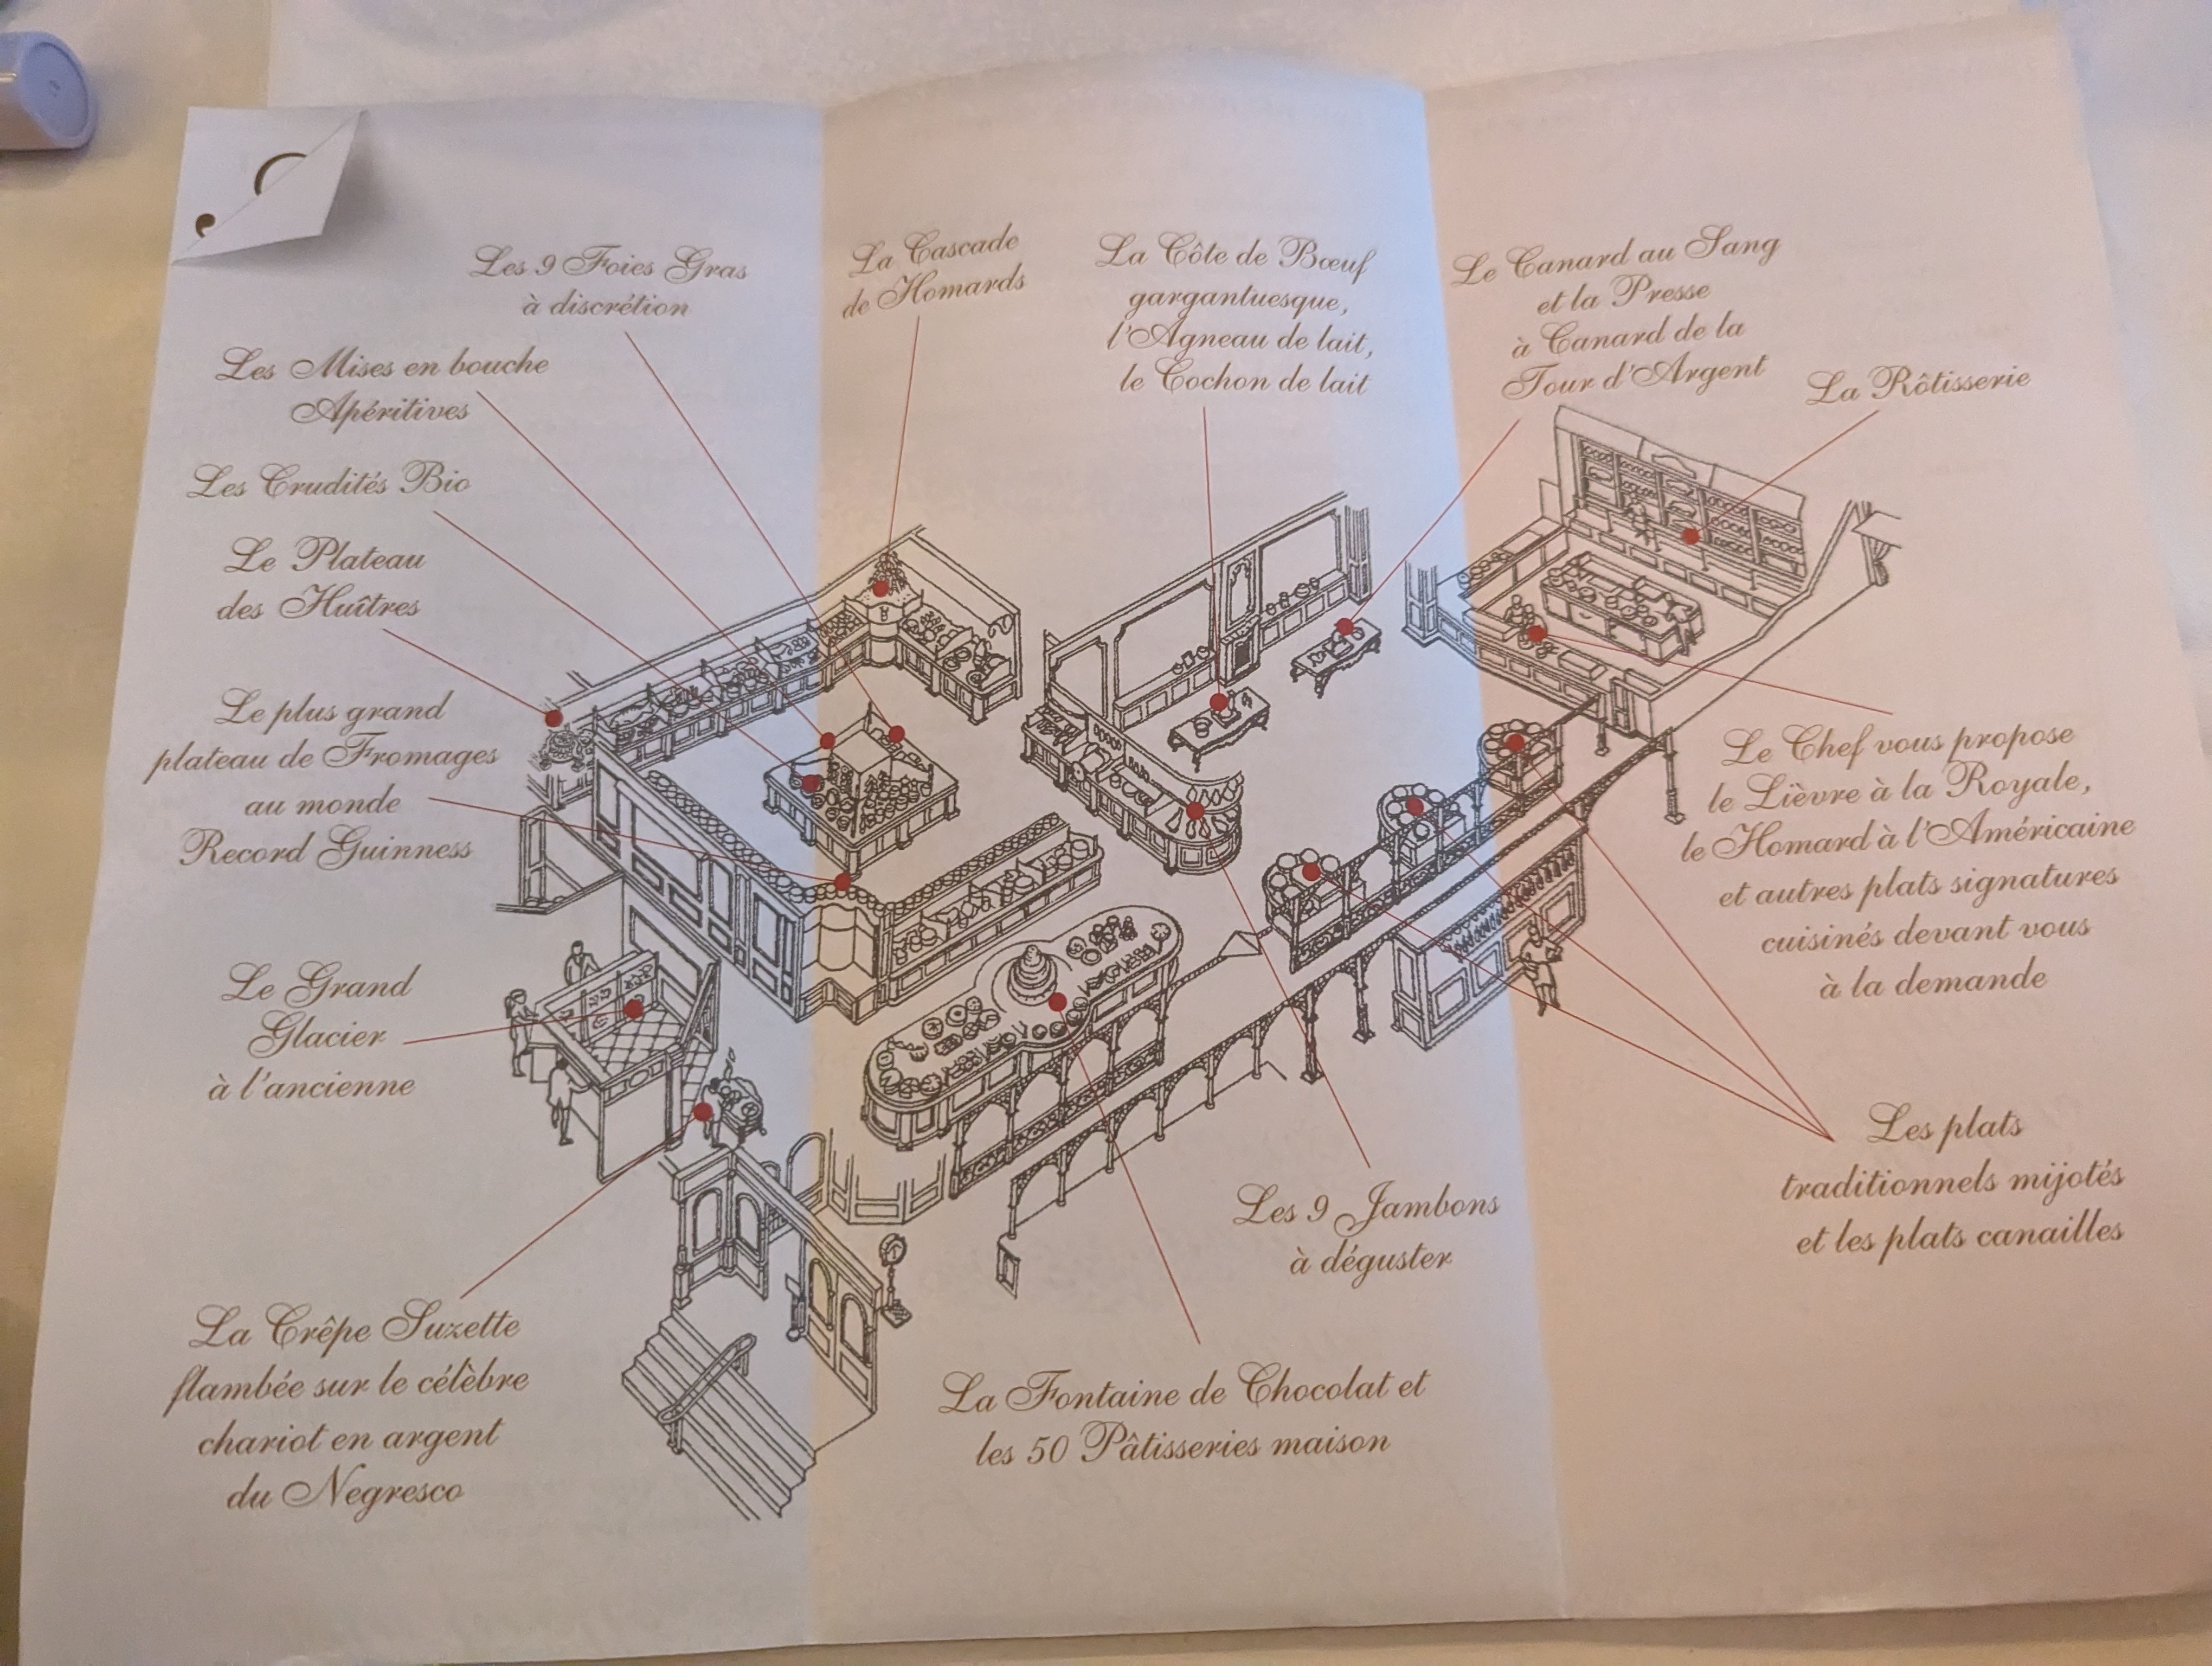 Les 9 Foies Gras
à discrétion
La Cascade
de Homards
La Côte de Bœuf
gargantuesque,
l'Agneau de lait,
le Cochon de lait
Le Canard au Sang
et la Presse
à Canard de la
Tour d'Argent
La Rôtisserie
Les Mises en bouche
Apéritives
Les Crudités Bio
Le Plateau
des Huîtres
Le plus grand
plateau de Fromages
au monde
Record Guinness
Le Chef vous propose
le Lièvre à la Royale,
le Homard à l'Américaine
et autres plats signatures
cuisinés devant vous
à la demande
Le Grand
Glacier
à l'ancienne
Les plats
traditionnels mijotés
et les plats canailles
Les 9 Jambons
à déguster
La Crêpe Suzette
flambée sur le célèbre
chariot en argent
du Negresco
La Fontaine de Chocolat et
les 50 Pâtisseries maison